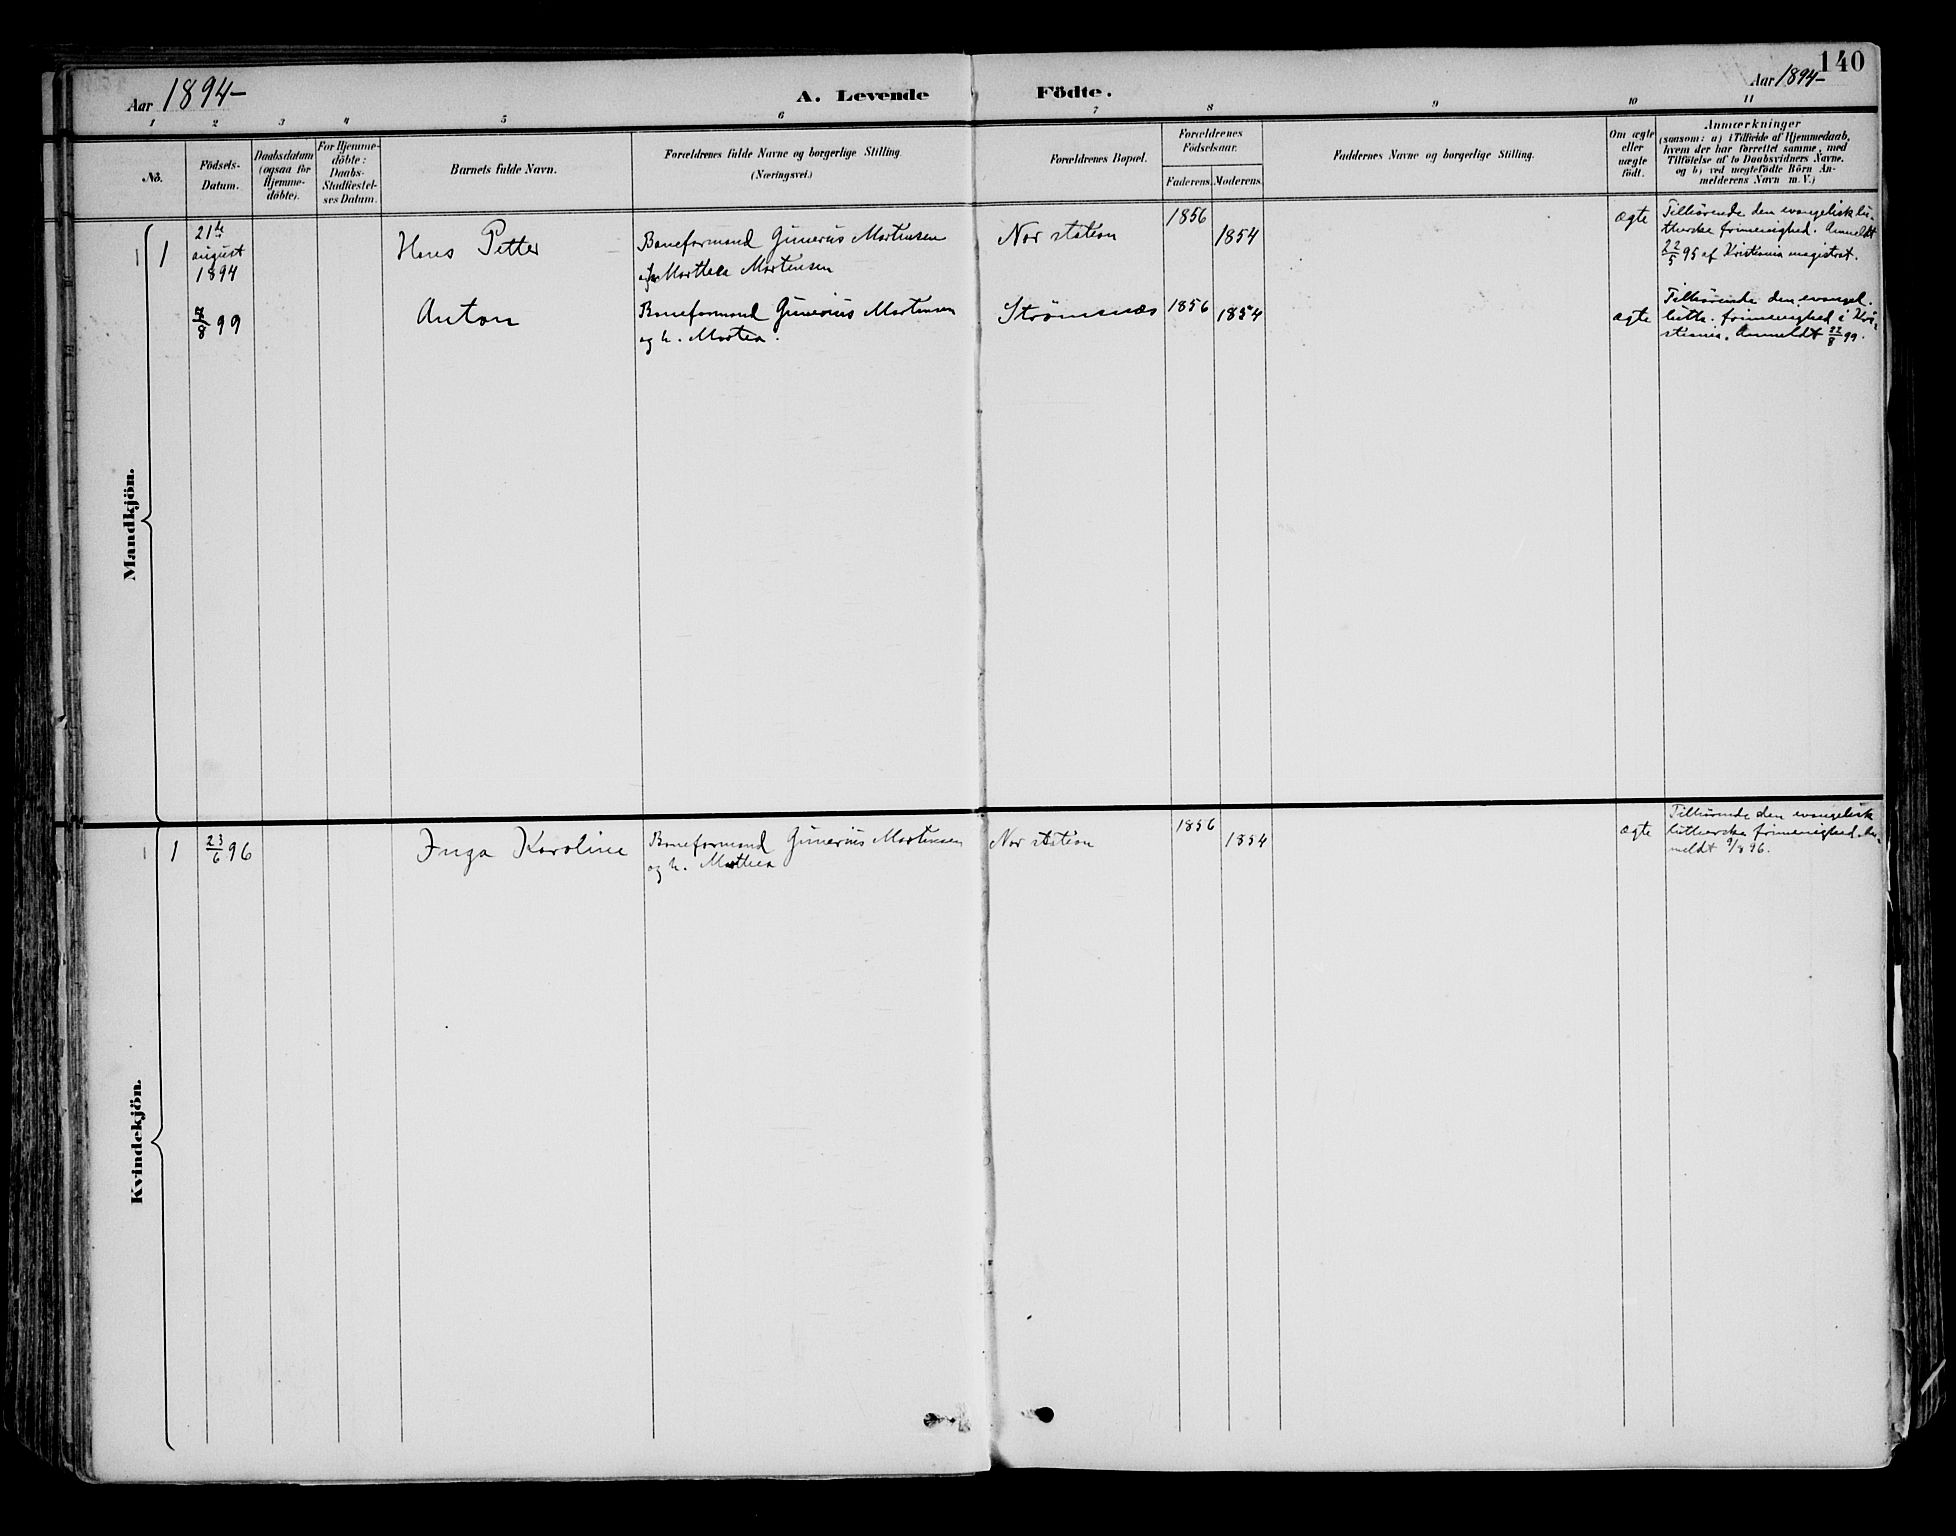 140
Aar 1894–
A. Levende Födte.
Aar 1894–
1 2 3 4 5 6 7 8 9 10 11
No.
Födsels-
Datum.
Daabsdatum
(ogsaa for
Hjemme-
döbte).
For Hjemme-
döbte:
Daabs-
Stadfæstel-
ses Datum.
Barnets fulde Navn.
Forældrenes fulde Navne og borgerlige Stilling.
(Næringsvei.)
Forældrenes Bopæl.
Forældrenes
Födselsaar.
Faderens.
Moderens.
Faddernes Navne og borgerlige Stilling.
Om ægte
eller
uægte
født.
Anmærkninger
(saasom: a) i Tilfælde af Hjemmedaab,
hvem der har forrettet samme, med
Tilföielse af to Daabsvidners Navne.
og b) ved uægtefödte Börn An-
melderens Navn m. V.)
Mandkjön.
1
21de
august
1894
Hans Petter
Baneformand Gunerius Martensen
Marthea Martensen
Nor station
1856
1854
ægte
Tilhørende den evangelisk lu-
therske frimenighed. Anmeldt
22/5 95 af Kristiania magistrat.
7/8 99
Anton
Baneformand Gunerius Martensen
og h. Martea.
Strømsnæs
1856
1854
ægte
Tilhørende den evangel.
luth. frimenighed i Kri-
stiania. Anmeldt 22/8 99.
Kvindekjön.
1
23/6 96
Inga Karoline
Baneformand Gunerius Martensen
og h. Mathea
Nor station
1856
1854
ægte
Tilhørende den evangelisk
lutherske frimenighed. An-
meldt 9/8 96.